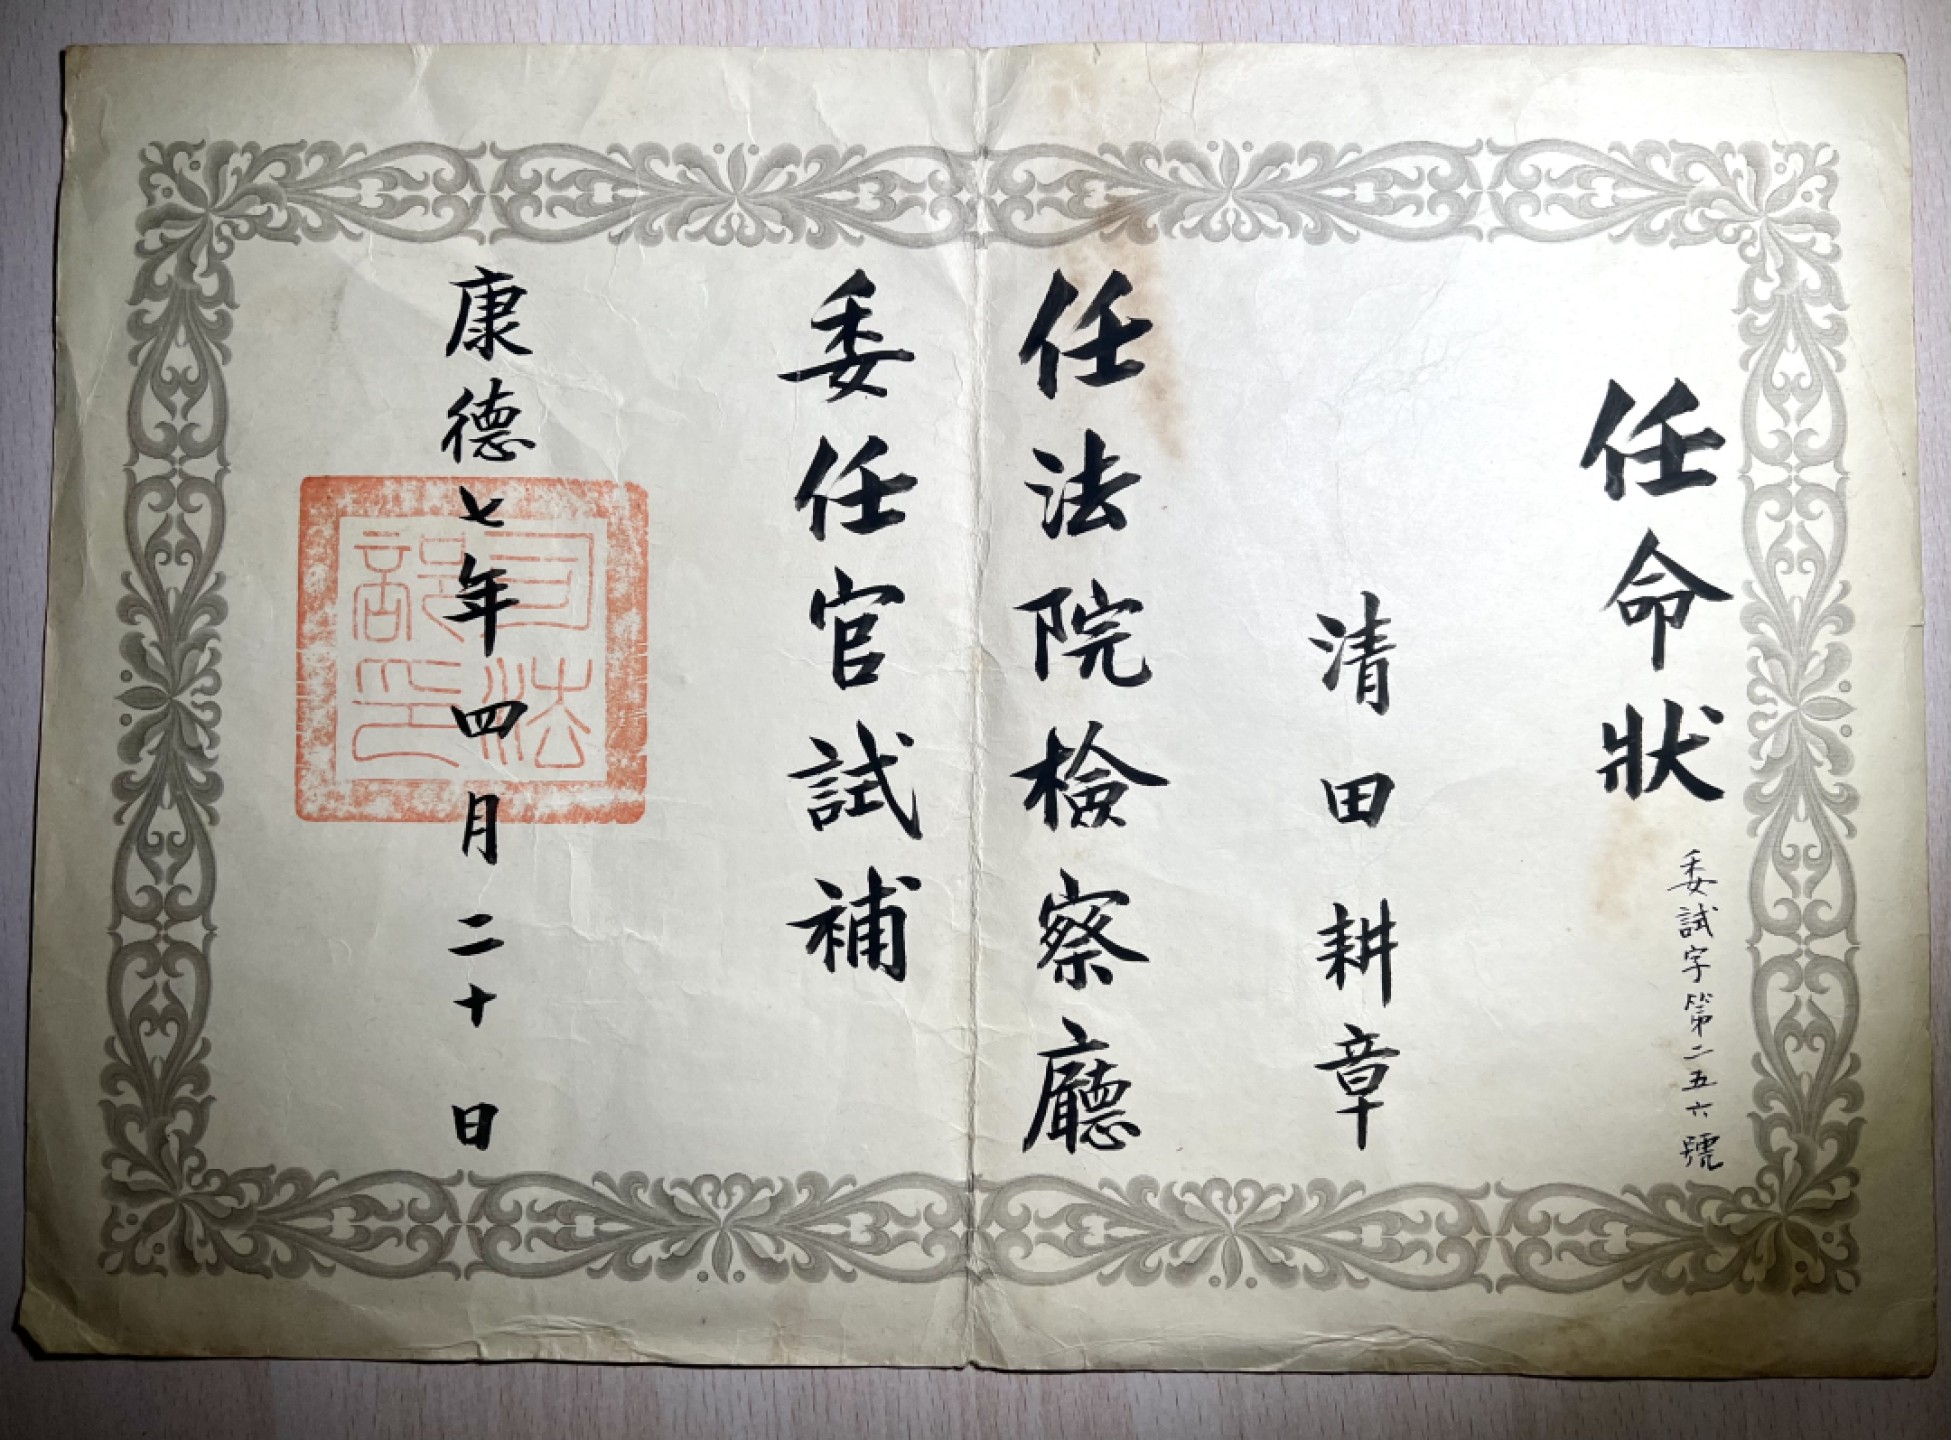 任命狀
委試字第二五六號
清田耕章
任法院檢察廳
委任官試補
康德七年四月二十日
司法部印